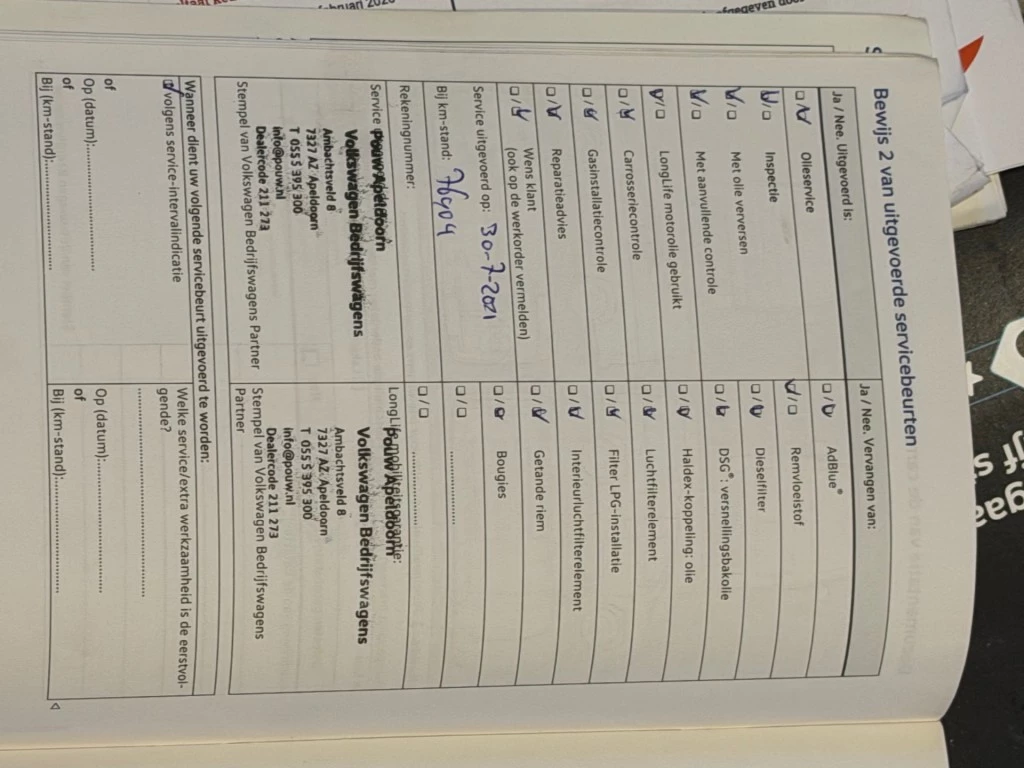 Bewijs 2 van uitgevoerde servicebeurten
Ja / Nee. Uitgevoerd is:
Olieservice
Inspectie
Met olie verversen
Met aanvullende controle
LongLife motorolie gebruikt
Carrosseriecontrole
Gasinstallatiecontrole
Reparatieadvies
Wens klant
(ook op de werkorder vermelden)
Service uitgevoerd op: 30-7-2021
Bij km-stand: 76904
Rekeningnummer:
Service
Pouw Apeldoorn
Volkswagen Bedrijfswagens
Ambachtsveld 8
7327 AZ Apeldoorn
T 055 5 395 300
info@pouw.nl
Dealercode 211 273
Stempel van Volkswagen Bedrijfswagens Partner
Ja / Nee. Vervangen van:
AdBlue®
Remvloeistof
Dieselfilter
DSG®: versnellingsbakolie
Haldex-koppeling: olie
Luchtfilterelement
Filter LPG-installatie
Interieurluchtfilterelement
Getande riem
Bougies
LongLife mobiliteitsgarantie:
Pouw Apeldoorn
Volkswagen Bedrijfswagens
Ambachtsveld 8
7327 AZ Apeldoorn
T 055 5 395 300
info@pouw.nl
Dealercode 211 273
Stempel van Volkswagen Bedrijfswagens
Partner
Wanneer dient uw volgende servicebeurt uitgevoerd te worden:
volgens service-intervalindicatie
of
Op (datum):
of
Bij (km-stand):
Welke service/extra werkzaamheid is de eerstvol-
gende?
Op (datum):
of
Bij (km-stand):